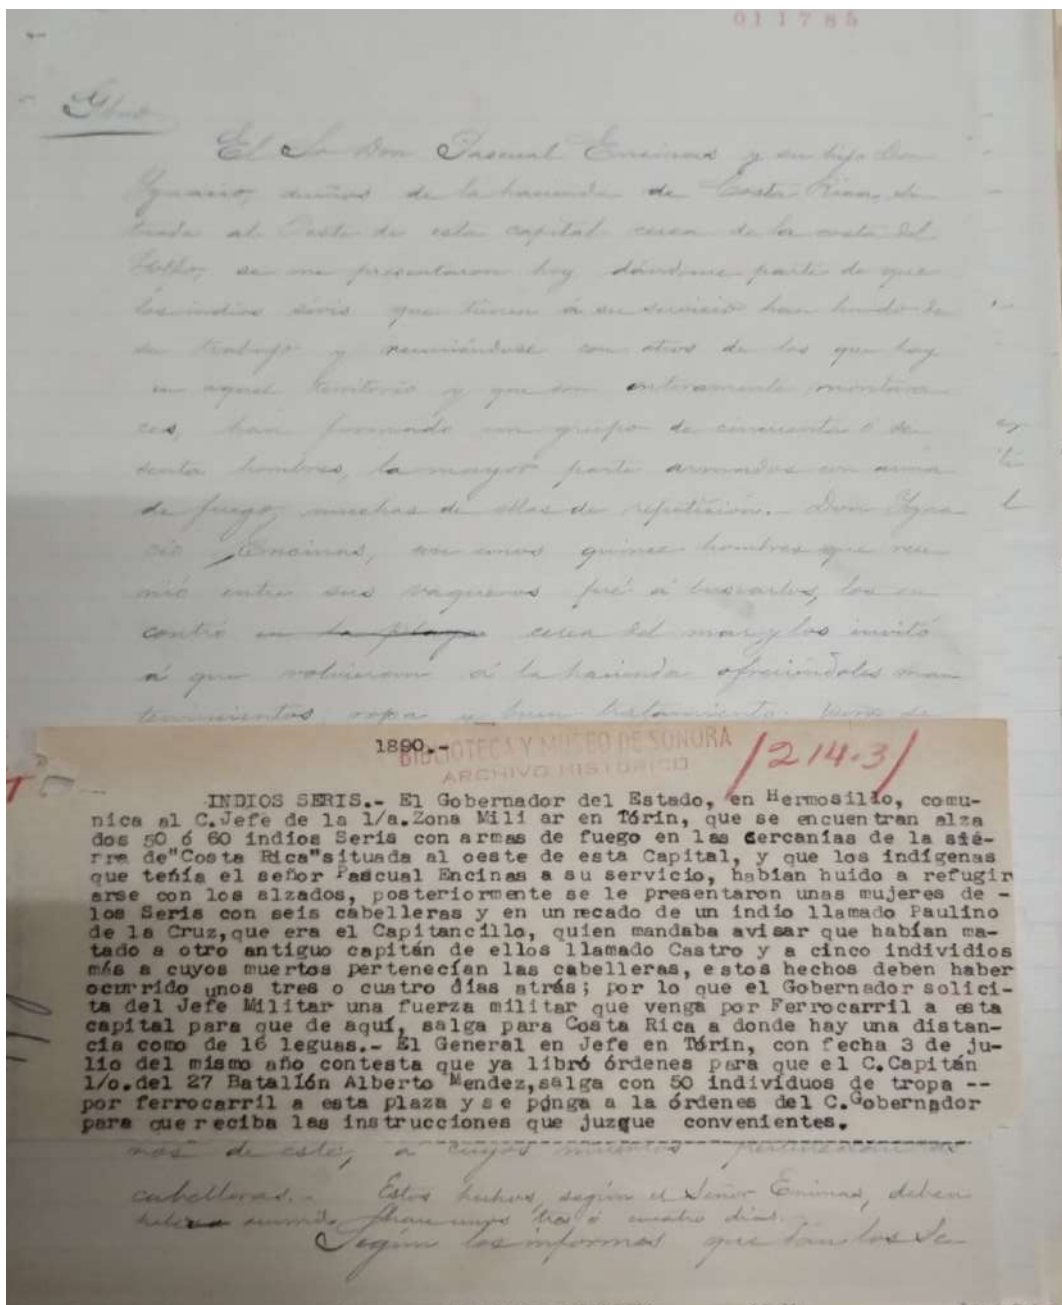 011785
Gbno
El Sr Don Pascual Encinas y su hijo Don
Ygnacio, dueños de la hacienda de Costa Rica, si
tuada al Oeste de esta capital cerca de la costa del
Golfo, se me presentaron hoy dándome parte de que
los indios seris que tienen á su servicio han huido de
su trabajo y reuniéndose con otros de los que hay
en aquel territorio y que son enteramente montara
ces, han formado un grupo de cincuenta ó se
senta hombres, la mayor parte armados con arma
de fuego, muchas de ellas de repetición.- Don Ygna
cio Encinas, con unos quince hombres que reu
nió entre sus vaqueros fué á buscarlos, los en
contró en la playa cerca del mar, y los invitó
á que volvieran á la hacienda ofreciéndoles man
tenimientos, ropa y buen tratamiento.
1890.-
BIBLIOTECA Y MUSEO DE SONORA
ARCHIVO HISTORICO
/214.3/
INDIOS SERIS.- El Gobernador del Estado, en Hermosillo, comu-
nica al C.Jefe de la 1/a.Zona Mili ar en Tórin, que se encuentran alza
dos 50 ó 60 indios Seris con armas de fuego en las cercanías de la sié-
rra de"Costa Rica"situada al oeste de esta Capital, y que los indígenas
que tenía el señor Pascual Encinas a su servicio, habían huido a refugir
arse con los alzados, posteriormente se le presentaron unas mujeres de -
los Seris con seis cabelleras y en un recado de un indio llamado Paulino
de la Cruz,que era el Capitancillo, quien mandaba avisar que habían ma-
tado a otro antiguo capitán de ellos llamado Castro y a cinco individios
más a cuyos muertos pertenecían las cabelleras, estos hechos deben haber
ocurrido unos tres o cuatro días atrás; por lo que el Gobernador solici-
ta del Jefe Militar una fuerza militar que venga por Ferrocarril a esta
capital para que de aquí, salga para Costa Rica a donde hay una distan-
cia como de 16 leguas.- El General en Jefe en Tórin, con fecha 3 de ju-
lio del mismo año contesta que ya libró órdenes para que el C.Capitán
1/o.del 27 Batallón Alberto Mendez,salga con 50 individuos de tropa --
por ferrocarril a esta plaza y se pónga a la órdenes del C.Gobernador
para que reciba las instrucciones que juzque convenientes.
mas de este, a cuyos muertos pertenecían las
cabelleras.- Estos hechos, según el Señor Encinas, deben
haber ocurrido hace unos tres ó cuatro dias.
Según los informes que dan los Se